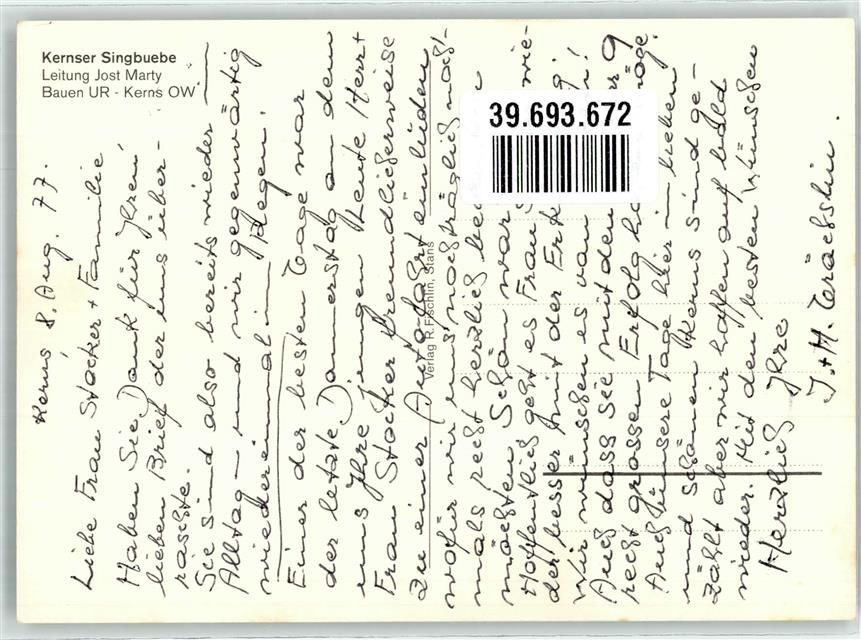 Kernser Singbuebe
Leitung Jost Marty
Bauen UR - Kerns OW
39.693.672
Verlag R. Fischlin, Stans
Kerns 8. Aug. 77.
Liebe Frau Stocker + Familie
Haben Sie Dank für Ihren
lieben Brief der uns über-
raschte.
Sie sind also bereits wieder
Alltag – und wir gegenwärtig
wiedereinmal im Regen!
Einer der besten Tage war
der letzte Donnerstag an dem
uns Ihre jungen Leute Herr +
Frau Stocker freundlicherweise
zu einer Autofahrt einluden
wofür wir uns nachträglich noch-
mals recht herzlich
möchten. Schön war
Hoffentlich geht es Frau wie-
der besser mit der
Wir wünschen es von !
Auch dass Sie mit den
recht grossen Erfolg
Auch unsere Tage hier im lieben
und schönen Kerns sind ge-
zählt aber wir hoffen auf bald
wieder. Mit den besten Wünschen
Herzlich Ihre
J. + M.